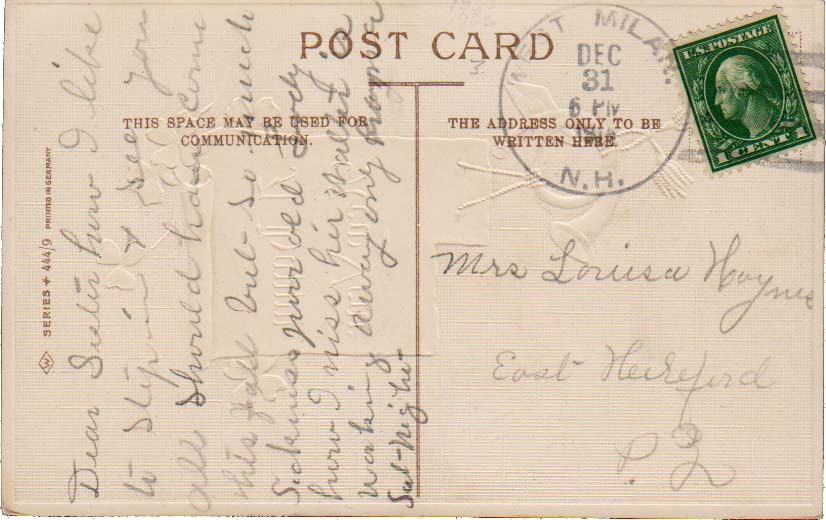 POST CARD
THIS SPACE MAY BE USED FOR
COMMUNICATION.
THE ADDRESS ONLY TO BE
WRITTEN HERE.
WEST MILAN
DEC
31
6 PM
N.H.
U.S. POSTAGE
1 CENT 1
SERIES # 444/9 PRINTED IN GERMANY
Dear Sister how I like
to step in & see you
all should have come
this fall but so much
Sickness
how I miss his
working away only
Sat-night-
Mrs Louisa Haynes
East Hereford
P. Q